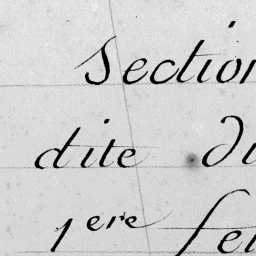 Section
dite du
1ere feu